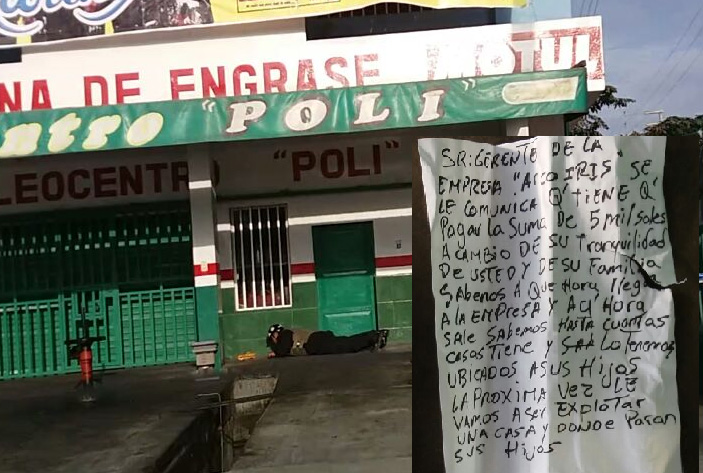 NA DE ENGRASE MOTUL
ntro "POLI"
LEOCENTRO "POLI"
SR: GERENTE DE LA
EMPRESA "ARCO IRIS" SE
LE COMUNICA Q' TIENE Q'
PAgar la Suma De 5 mil soles
A CAMBIO DE SU Tranquilidad
DE USTED Y DE SU Familia
SABEMOS A QUE Hora llega
A la EMPRESA Y A Q' Hora
Sale SABEMOS HASTA cuantas
casas Tiene y La Tenemos
UBICADOS A SUS Hijos
LA PROXIMA VEZ LE
VAMOS A SER EXPLOTAR
UNA CASA Y DONDE Paran
SUS Hijos